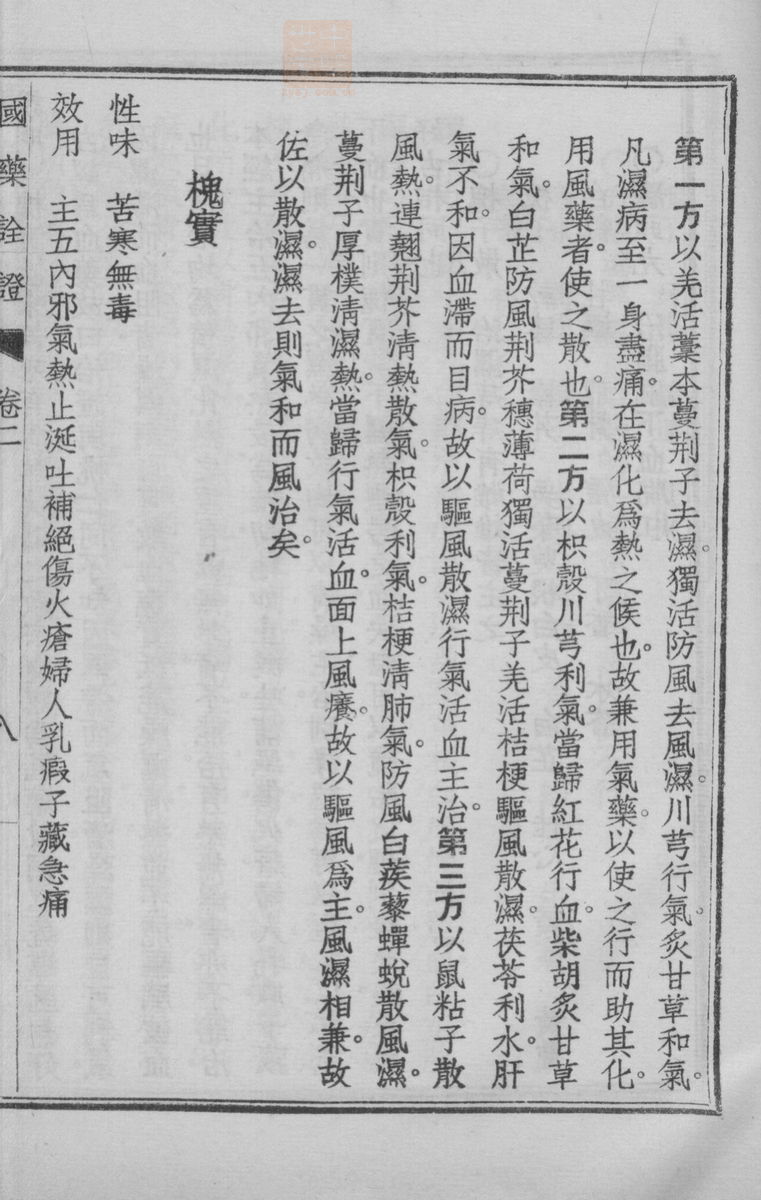 第一方以羌活藁本蔓荆子去濕。獨活防風去風濕。川芎行氣。炙甘草和氣。
凡濕病至一身盡痛。在濕化爲熱之候也。故兼用氣藥。以使之行而助其化。
用風藥者。使之散也。第二方以枳殼川芎利氣。當歸紅花行血。柴胡炙甘草
和氣。白芷防風荆芥穗薄荷獨活蔓荆子羌活桔梗驅風散濕。茯苓利水。肝
氣不和。因血滯而目病。故以驅風散濕行氣活血主治。第三方以鼠粘子散
風熱。連翹荆芥淸熱散氣。枳殼利氣。桔梗淸肺氣。防風白蒺藜蟬蛻散風濕。
蔓荆子厚樸淸濕熱。當歸行氣活血。面上風癢。故以驅風爲主。風濕相兼。故
佐以散濕。濕去則氣和而風治矣。
槐實
性味　苦寒無毒
效用　主五內邪氣熱止涎吐補絕傷火瘡婦人乳瘕子藏急痛
國藥詮證　卷二　八